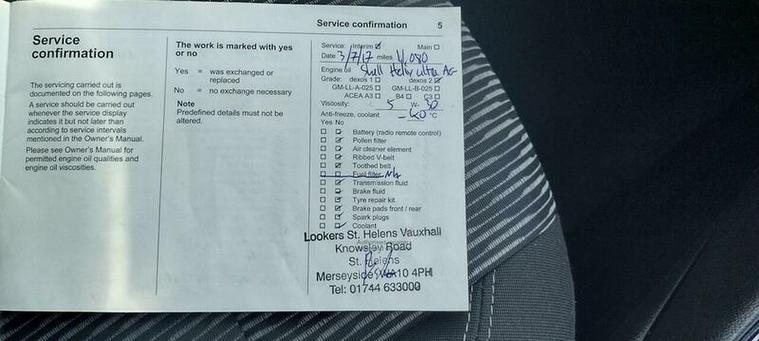 Service confirmation 5
Service
confirmation
The servicing carried out is
documented on the following pages.
A service should be carried out
whenever the service display
indicates it but not later than
according to service intervals
mentioned in the Owner's Manual.
Please see Owner's Manual for
permitted engine oil qualities and
engine oil viscosities.
The work is marked with yes
or no
Yes = was exchanged or
replaced
No = no exchange necessary
Note
Predefined details must not be
altered.
Service: Interim ☑ Main ☐
Date 3/7/17 miles
Engine oil Shell Helix Ultra AG
Grade: dexos 1 ☐ dexos 2 ☑
GM-LL-A-025 ☐ GM-LL-B-025 ☐
ACEA A3 ☐ B4 ☐ C3 ☐
Viscosity: 5 W- 30
Anti-freeze, coolant -40 °C
Yes No
☐ ☑ Battery (radio remote control)
☐ ☑ Pollen filter
☐ ☑ Air cleaner element
☐ ☑ Ribbed V-belt
☐ ☑ Toothed belt
☐ ☐ Fuel filter N/A
☐ ☑ Transmission fluid
☐ ☑ Brake fluid
☐ ☑ Tyre repair kit
☐ ☑ Brake pads front / rear
☐ ☑ Spark plugs
☐ ☑ Coolant
Lookers St. Helens Vauxhall
Knowsley Road
St. Helens
Merseyside WA10 4PH
Tel: 01744 633000